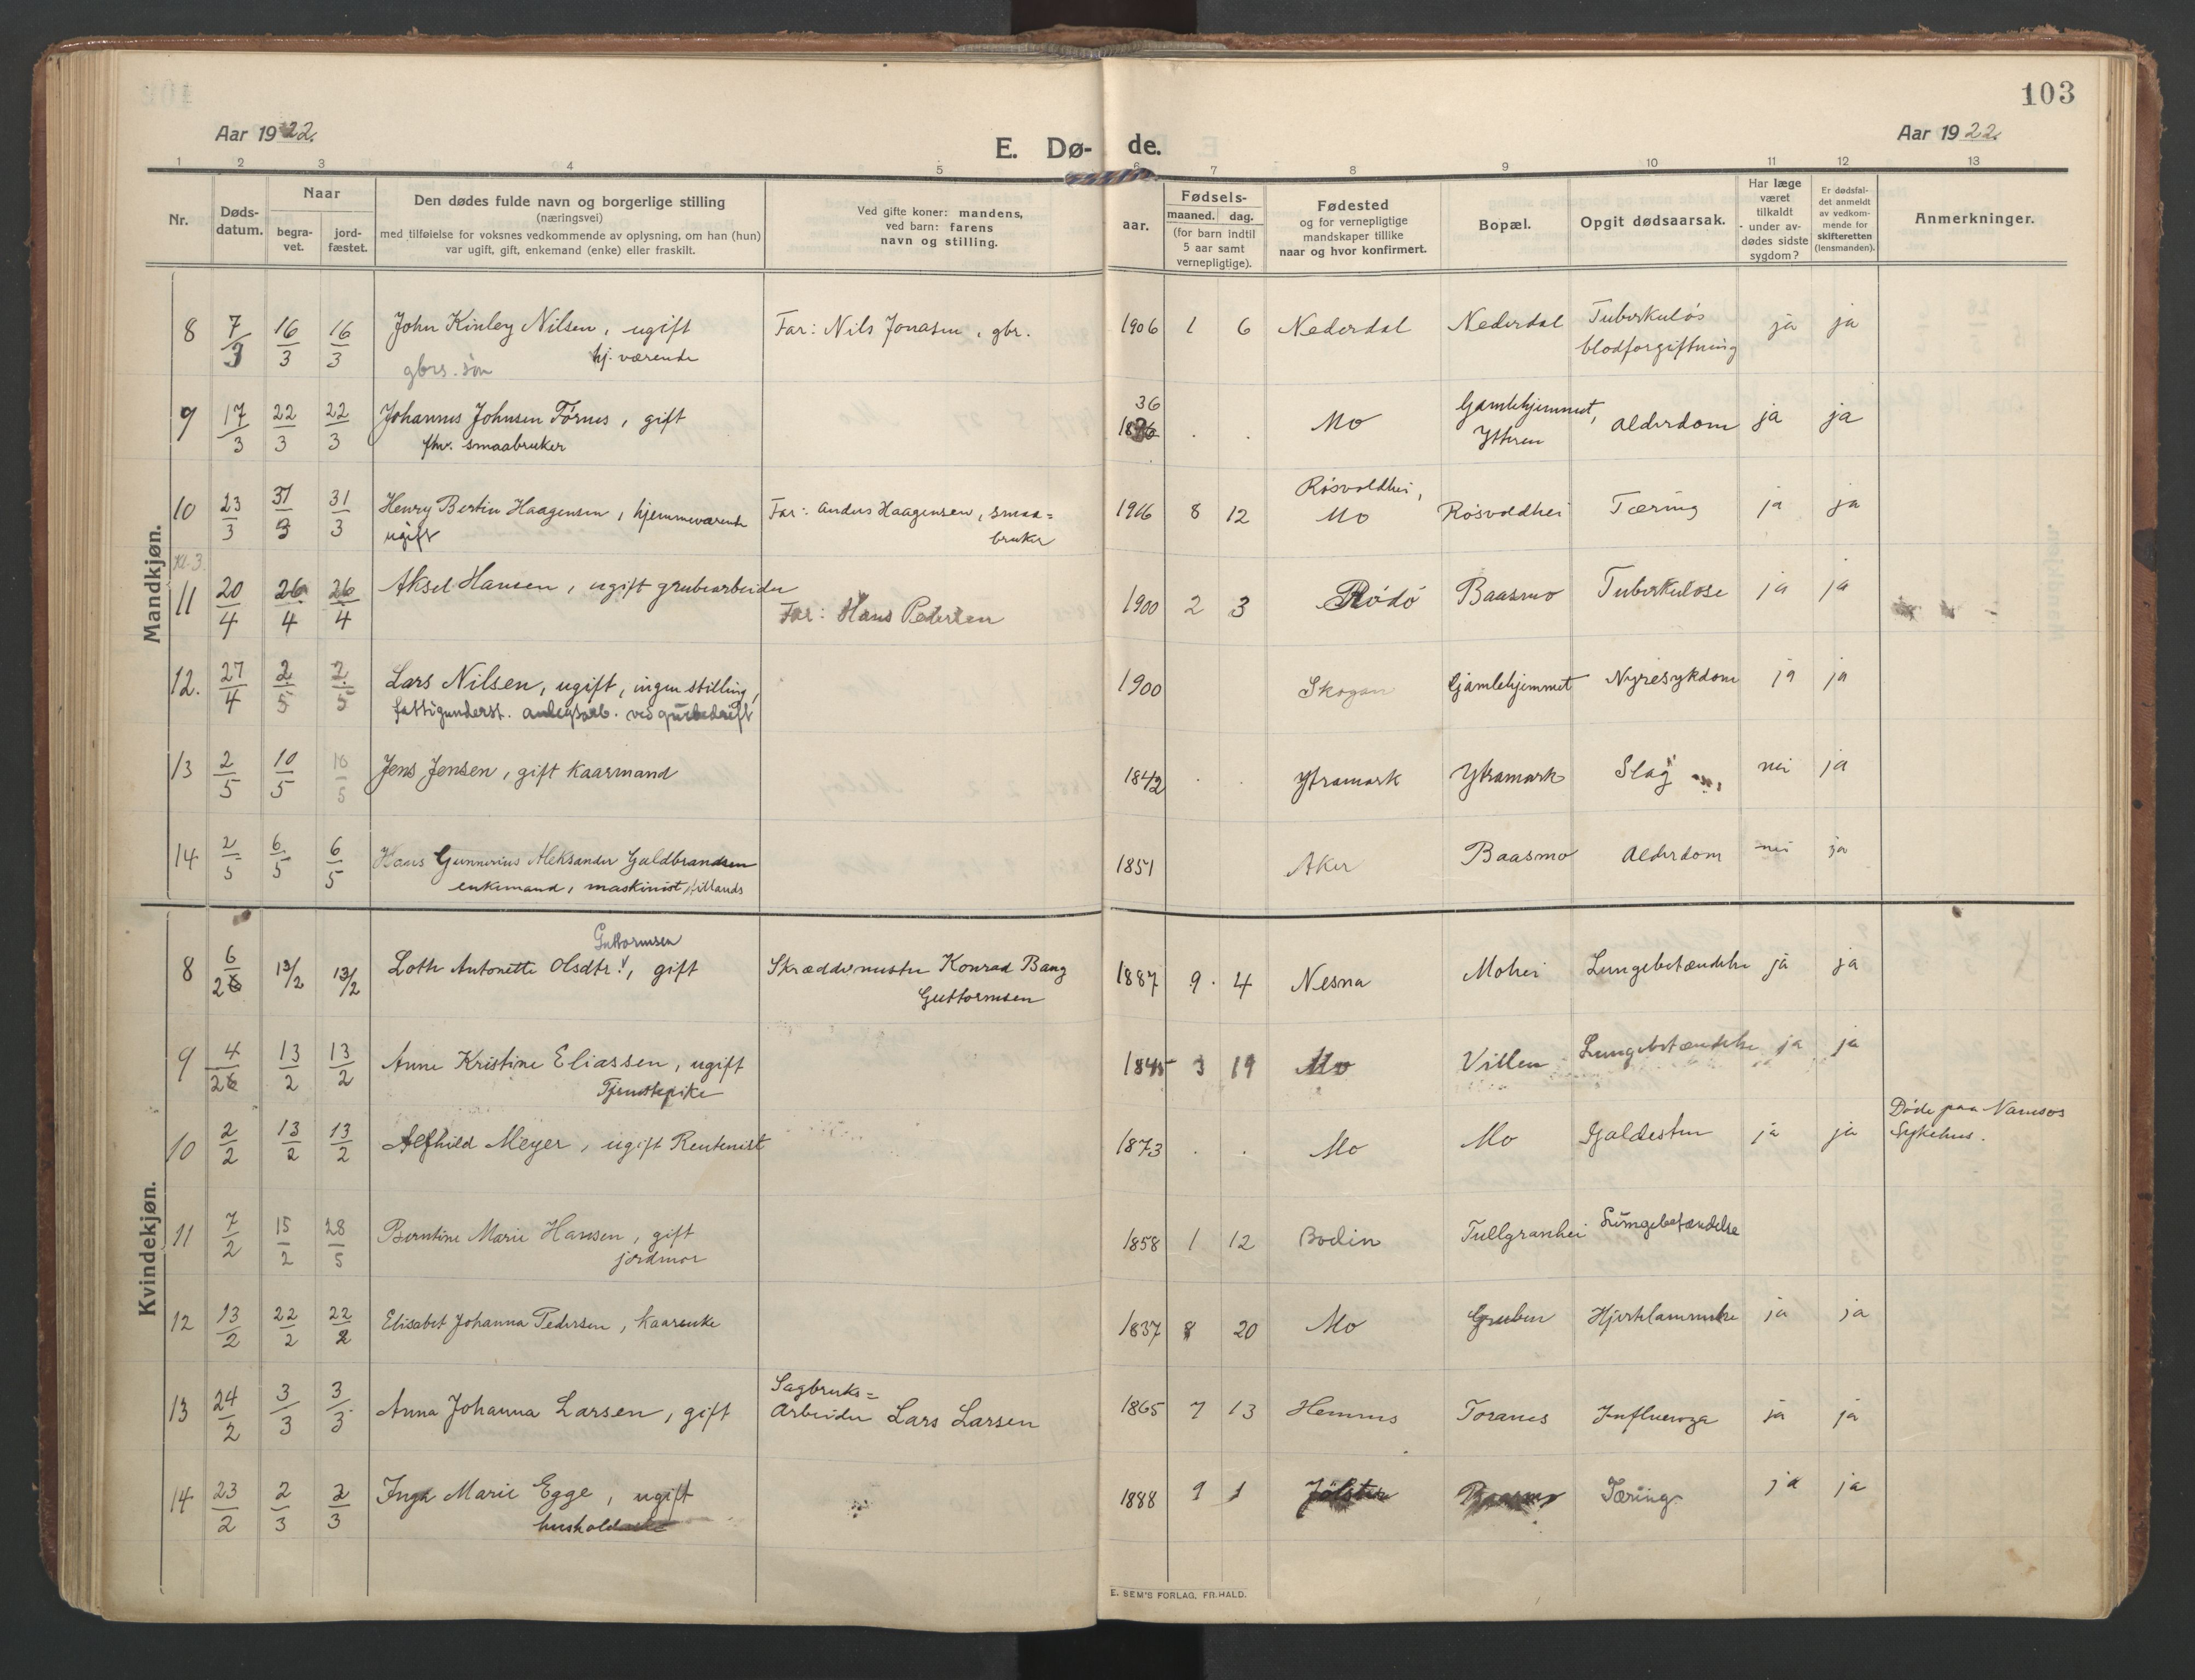 103
Aar 1922.
E. Dø-
de.
Aar 1922.
1 2 3 4 5 6 7 8 9 10 11 12 13
Nr.
Døds-
datum.
Naar
begra-
vet.
jord-
fæstet.
Den dødes fulde navn og borgerlige stilling
(næringsvei)
med tilføielse for voksnes vedkommende av oplysning, om han (hun)
var ugift, gift, enkemand (enke) eller fraskilt.
Ved gifte koner: mandens,
ved barn: farens
navn og stilling.
aar.
Fødsels-
maaned. dag.
(for barn indtil
5 aar samt
vernepligtige).
Fødested
og for vernepligtige
mandskaper tillike
naar og hvor konfirmert.
Bopæl.
Opgit dødsaarsak.
Har læge
været
tilkaldt
under av-
dødes sidste
sygdom?
Er dødsfal-
det anmeldt
av vedkom-
mende for
skifteretten
(lensmanden).
Anmerkninger.
Mandkjøn.
8 7/3 16/3 16/3 John Kinley Nilsen, ugift Far: Nils Jonasen, gbr. 1906 1 6 Nederdal Nederdal Tuberkuløs ja ja
hj. værende blodforgiftning
gbrs. søn
9 17/3 22/3 22/3 Johannes Johnsen Førnes, gift 36 Mo Gamlehjemmet, Alderdom ja ja
fhv. smaabruker Ytteren
10 23/3 31/3 31/3 Henry Bertin Haagensen, hjemmeværende Far: Anders Haagensen, smaa= 1906 8 12 Røsvoldhei, Røsvoldhei Tæring ja ja
ugift bruker Mo
Kl. 3.
11 20/4 26/4 26/4 Aksel Hansen, ugift grubearbeider 1900 2 3 Rødø Baasmo Tuberkulose ja ja
Far: Hans Pedersen
12. 27/4 2/5 2/5 Lars Nilsen, ugift, ingen stilling, 1900 Skogan Gamlehjemmet Nyresykdom ja ja
fattigunderst. anlegsarb. ved grubedrift
13 2/5 10/5 10/5 Jens Jensen, gift kaarmand 1842 Ytramark Ytramark Slag nei ja
14 2/5 6/5 6/5 Hans Gunnerius Aleksander Guldbrandsen 1851 Aker Baasmo Alderdom nei ja
enkemand, maskinist, tillands
Kvindekjøn.
Guttormsen
8 6/2 13/2 13/2 Loth Antonette Olsdtr.!, gift Skræddermester Konrad Bang 1887 9 4 Nesna Mohei Lungebetændelse ja ja
Guttormsen
9 4/2 13/2 13/2 Anne Kristine Eliassen, ugift 1845 3 19 Mo Villen Lungebetændelse ja ja
Tjenestepike
10 2/2 13/2 13/2 Alfhild Meyer, ugift Rentenist 1873 Mo Mo Galdesten ja ja Døde paa Namsos
Sykehus.
11 7/2 15/2 28/5 Berntine Marie Hansen, gift 1858 1 12 Bodin Tullgranhei Lungebetændelse
jordmor
12 13/2 22/2 22/2 Elisabet Johanna Pedersen, Kaarenke 1837 8 20 Mo Gruben Hjertelammelse ja ja
13 24/2 3/3 3/3 Anna Johanna Larsen, gift Sagbruks= 1865 7 13 Hemnes Toranes Influenza ja ja
Arbeider Lars Larsen
14 23/2 2/3 2/3 Inga Marie Egge, ugift 1888 9 1 Jølster Baasmo Tæring ja ja
E. SEM'S FORLAG, FR.HALD.